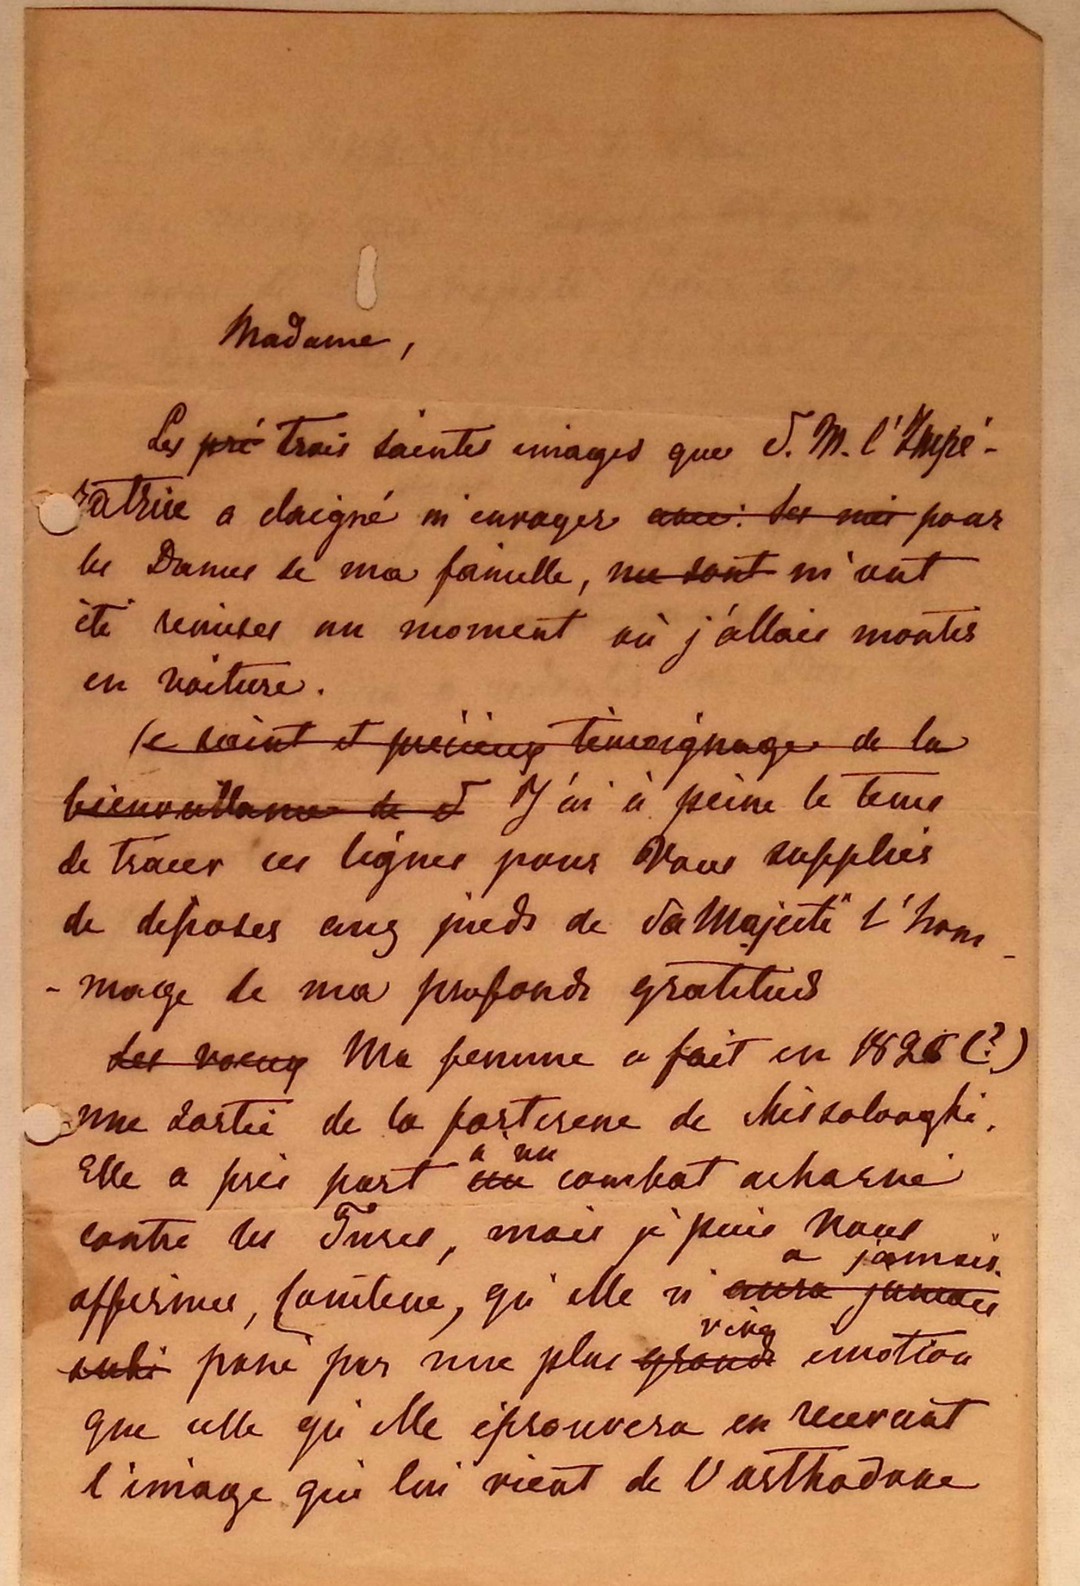 Madame,
Les ~~pré~~ trois saintes images que S. M. l'Impé-
ratrice a daigné m'envoyer ~~avec: ses~~ pour
les Dames de ma famille, ~~me sont~~ m'ont
été remises au moment où j'allais monter
en voiture.
~~Ce saint et précieux témoignage de la~~
~~bienveillance de S~~ J'ai à peine le tems
de tracer ces lignes pour Vous supplier
de déposer aux pieds de Sa Majesté l'hom-
-mage de ma profonde gratitude
~~Les voeux~~ Ma femme a fait en 1826 (?)
une sortie de la forteresse de Missolonghi.
Elle a pris part ~~au~~ à un combat acharné
contre les Turcs, mais je puis Vous
affirmer, Comtesse, qu'elle n'~~aura jamais~~ a jamais
~~subi~~ passé par une plus ~~grande~~ vive émotion
que celle qu'elle éprouvera en recevant
l'image qui lui vient de l'orthodoxe